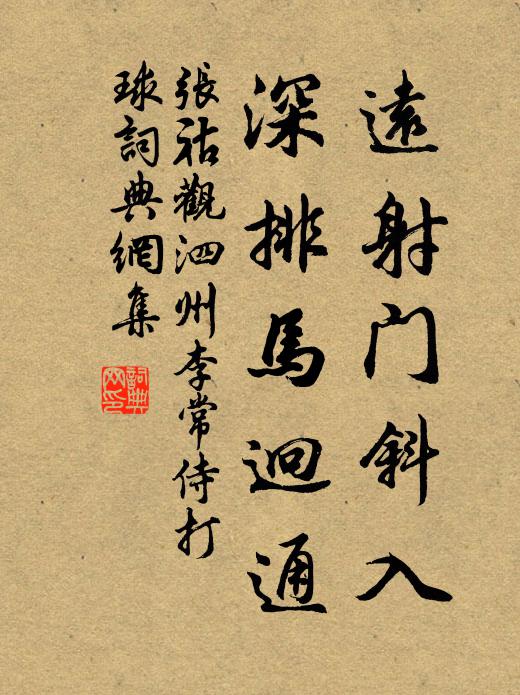 遠射門斜入
深排馬迥通
張祜觀泗州李常侍打
球詞典網集
詞典網印